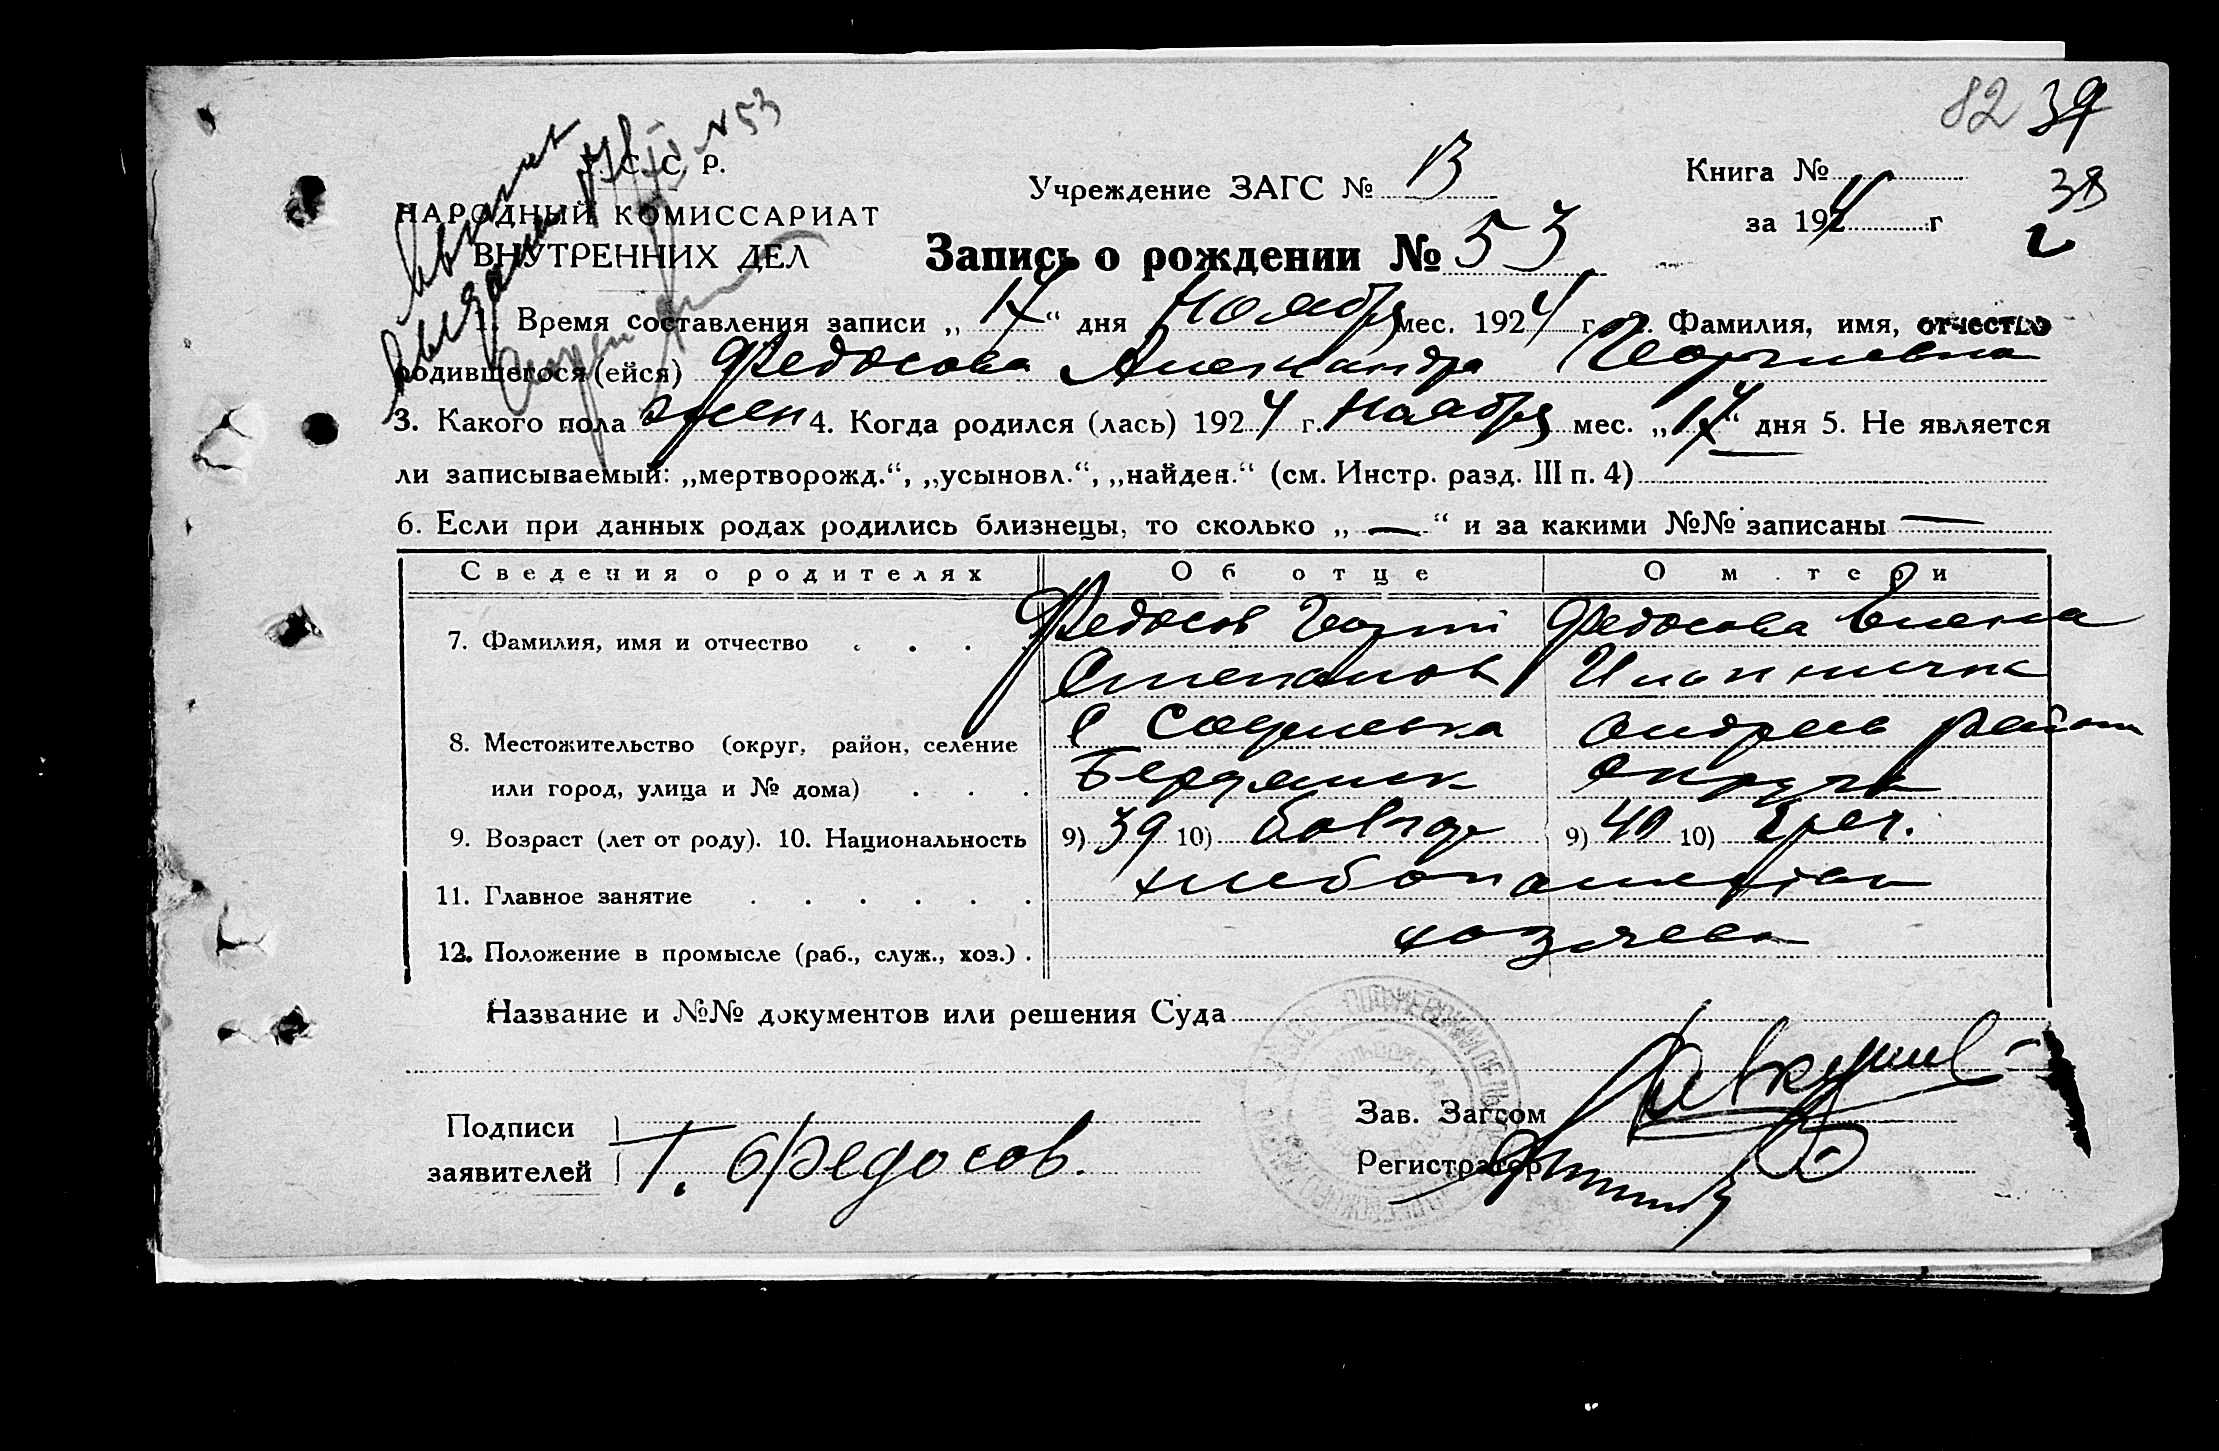 82 39
38
№ 53
С. С. Р.
НАРОДНЫЙ КОМИССАРИАТ
ВНУТРЕННИХ ДЕЛ
Учреждение ЗАГС № В
Книга №
за 1924 г
Запись о рождении № 53
1. Время составления записи „17“ дня Ноября мес. 1924 г. 2. Фамилия, имя, отчество
родившегося (ейся) Федосова Александра Георгиевна
3. Какого пола жен 4. Когда родился (лась) 1924 г. Ноября мес. „17“ дня 5. Не является
ли записываемый: „мертворожд.“, „усыновл.“, „найден.“ (см. Инстр. разд. III п. 4)
6. Если при данных родах родились близнецы, то сколько „ — “ и за какими №№ записаны —
Сведения о родителях Об отце О м.тери
7. Фамилия, имя и отчество Федосов Георгий Федосова Елена
Степанов Ильинична
8. Местожительство (округ, район, селение С Андреев район
или город, улица и № дома) Бердянск округа
9. Возраст (лет от роду). 10. Национальность 9) 39 10) болгар 9) 40 10) греч.
11. Главное занятие хлебопашество
12. Положение в промысле (раб., служ., хоз.) хозяева
Название и №№ документов или решения Суда
Подписи
заявителей Г. Федосов.
Зав. Загсом
Регистратор